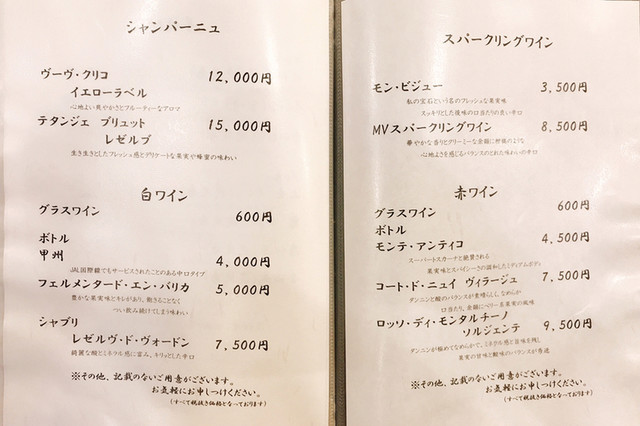 シャンパーニュ
ヴーヴ・クリコ 12,000円
イエローラベル
心地よい爽やかさとフルーティーなアロマ
テタンジェ ブリュット 15,000円
レゼルブ
生き生きとしたフレッシュ感とデリケートな果実や蜂蜜の味わい
白ワイン
グラスワイン 600円
ボトル
甲州 4,000円
JAL国際線でもサービスされたことのある中口タイプ
フェルメンタード・エン・バリカ 5,000円
豊かな果実味とキレがあり、飽きることなく
つい飲み続けてしまう味わい
シャブリ
レゼルヴ・ド・ヴォードン 7,500円
綺麗な酸とミネラル感に富み、キリッとした辛口
※その他、記載のないご用意がございます。
お気軽にお申しつけください。
(すべて税抜き価格となっております)
スパークリングワイン
モン・ビジュー 3,500円
私の宝石という名のフレッシュな果実味
スッキリとした後味の口当たりの良い辛口
MVスパークリングワイン 8,500円
華やかな香りとクリーミーな余韻に柑橘のような
心地よさを感じるバランスのとれた味わいの辛口
赤ワイン
グラスワイン 600円
ボトル
モンテ・アンティコ 4,500円
スーパートスカーナと絶賛される
果実味とスパイシーさの調和したミディアムボディ
コート・ド・ニュイ ヴィラージュ 7,500円
タンニンと酸のバランスが素晴らしく、なめらか
口当たり、余韻にベリー系果実の風味
ロッソ・ディ・モンタルチーノ
ソルジェンテ 9,500円
タンニンが極めてなめらかで、ミネラル感と旨味を残し
果実の甘味と酸味のバランスが色濃
※その他、記載のないご用意がございます。
お気軽にお申しつけください。
(すべて税抜き価格となっております)